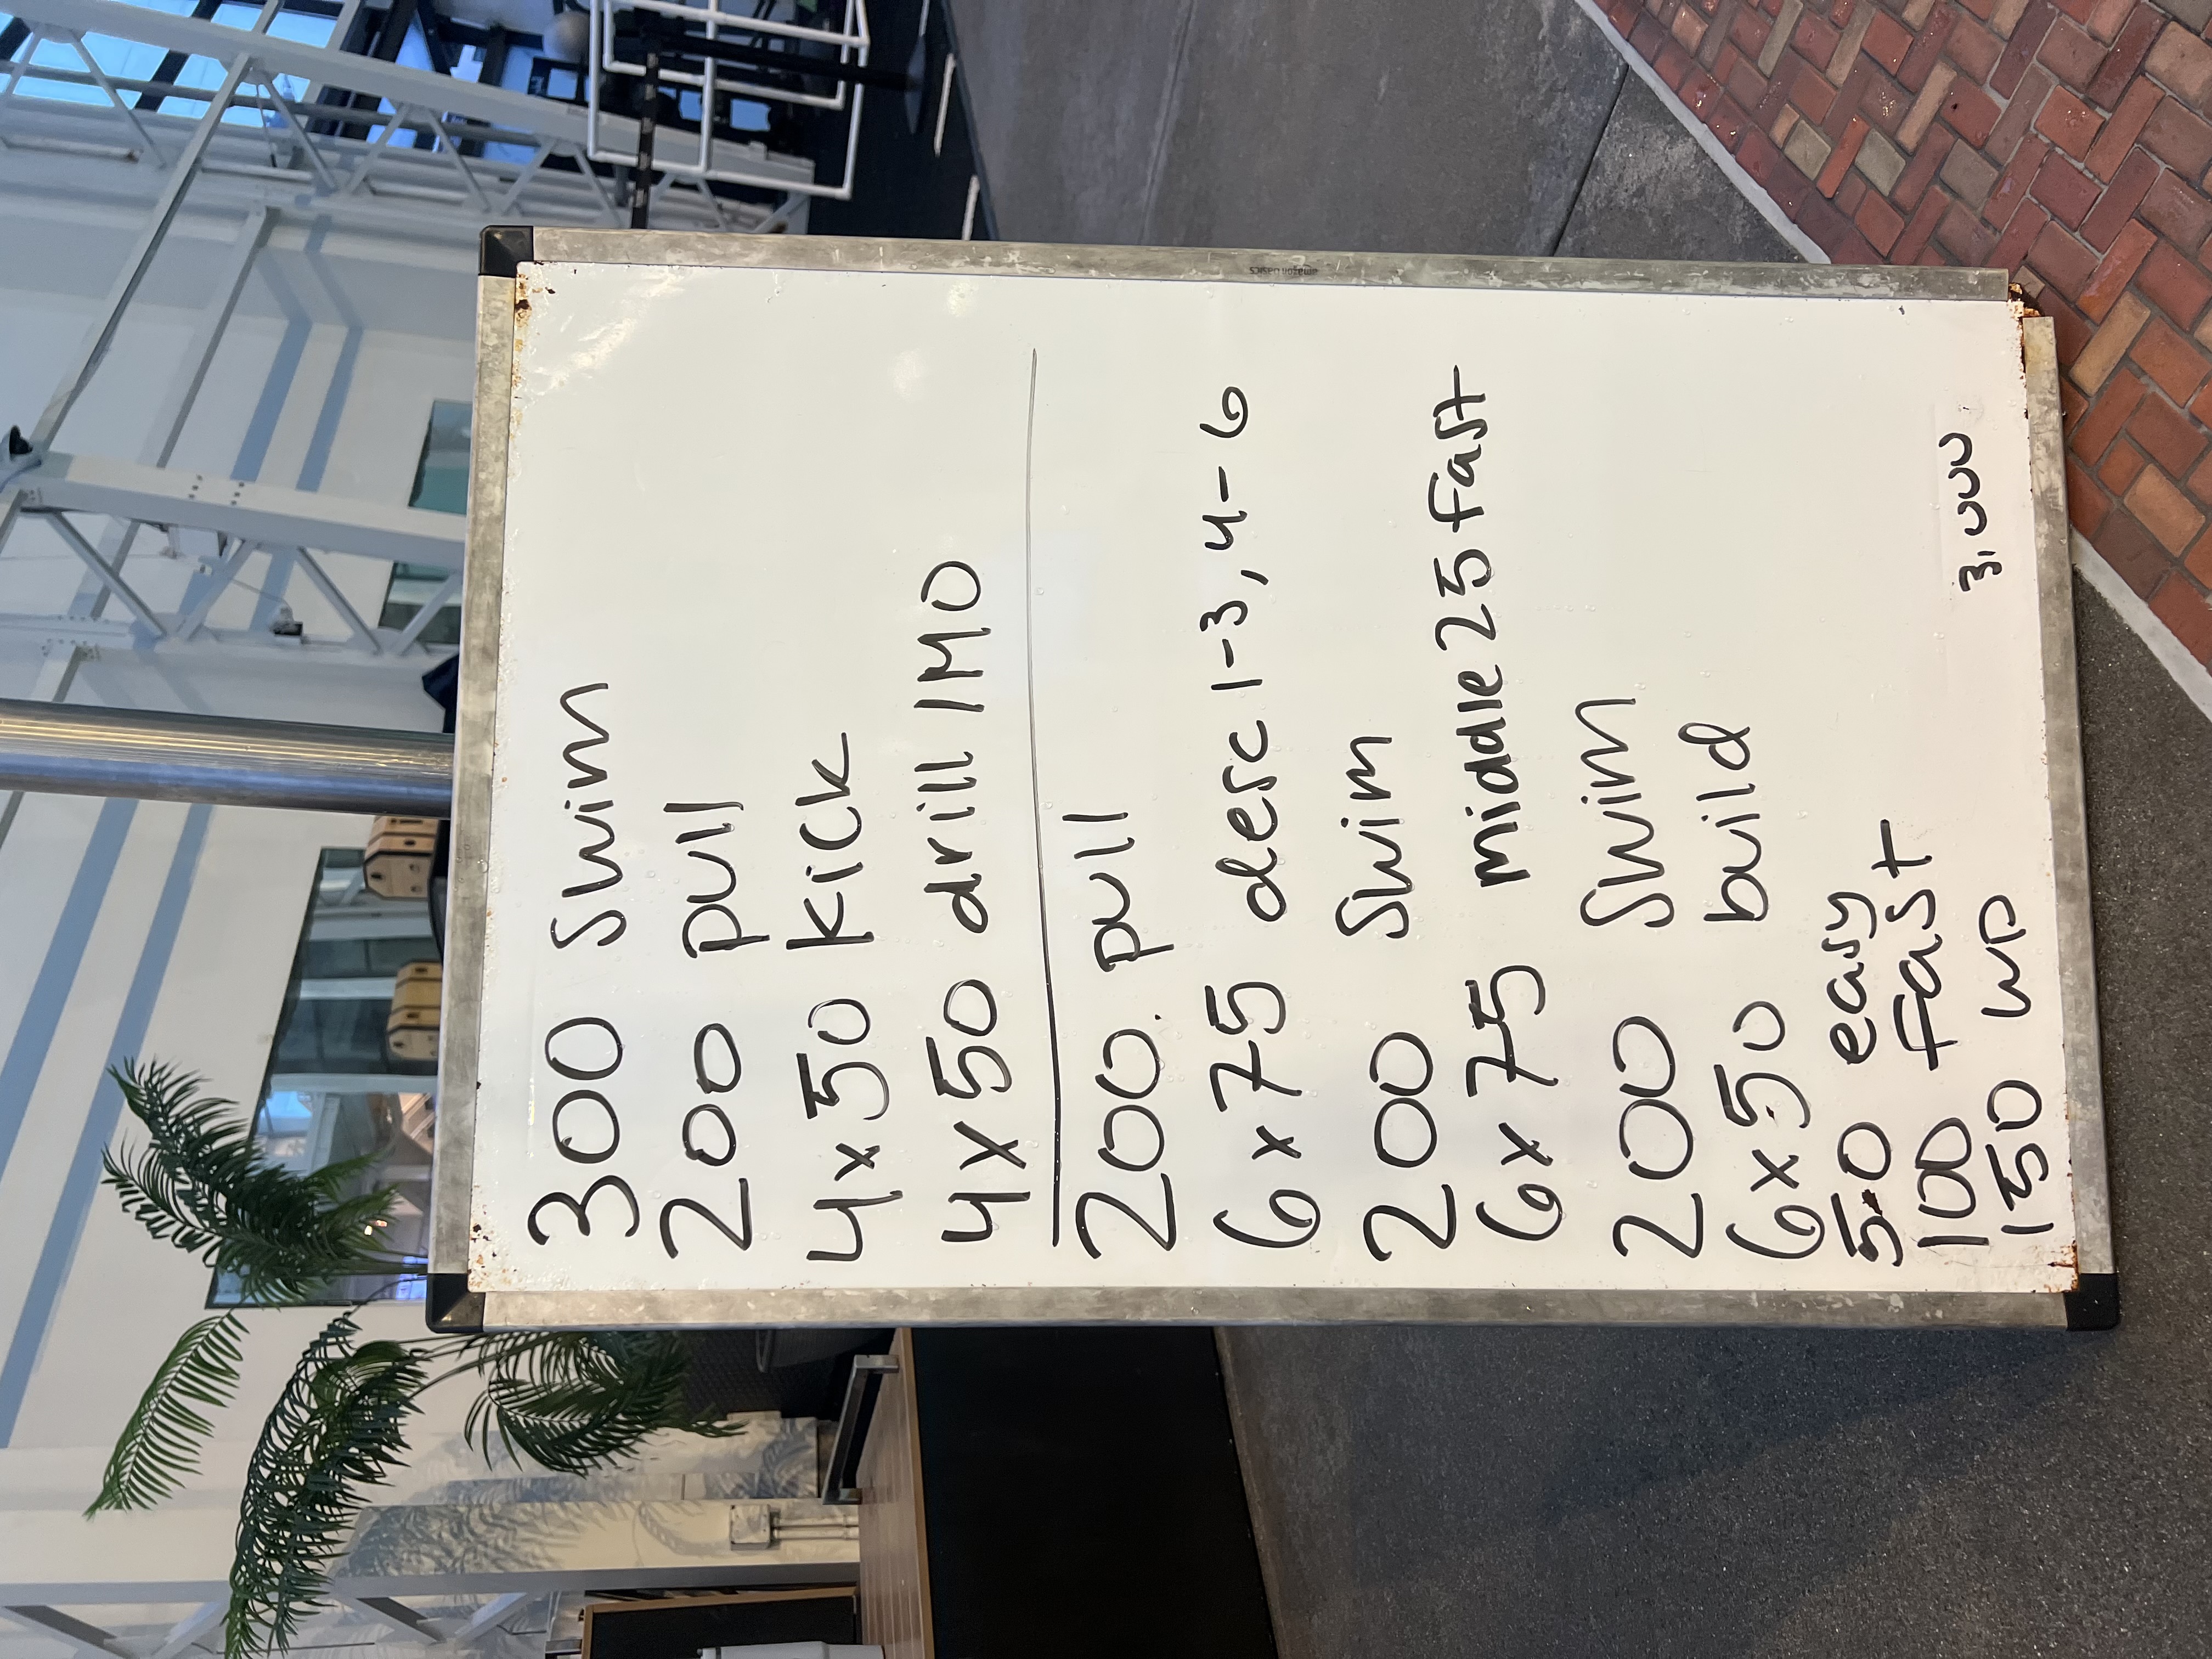 300 Swim
200 pull
4x50 kick
4x50 drill IMO
200 pull
6x75 desc 1-3, 4-6
200 Swim
6x75 middle 25 fast
200 Swim
6x50 build
50 easy
100 Fast
150 WD
3,000
amazon basics